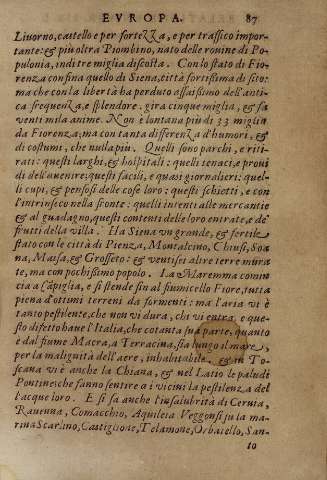 EVROPA. 87
Liuorno, castello e per fortezza, e per traffico impor-
tante: & più oltra Piombino, nato delle rouine di Po-
pulonia, indi tre miglia discosta. Con lo stato di Fio-
renza confina quello di Siena, città fortissima di sito:
ma che con la libertà ha perduto assaissimo dell'anti-
ca frequenza, e splendore. gira cinque miglia, e fa
venti mila anime. Non è lontana più di 33 miglia
da Fiorenza; ma con tanta differenza d'humori, &
di costumi, che nulla più. Quelli sono parchi, e riti-
rati: questi larghi, & hospitali: quelli tenaci, e proui
di dell'auenire; questi facili, e quasi giornalieri: quel-
li cupi, e pensosi delle cose loro: questi schietti, e con
l'intrinseco nella fronte: quelli intenti alle mercantie
& al guadagno, questi contenti delle loro entrate, e de'
frutti della villa. Ha Siena vn grande, & fertile
stato con le città di Pienza, Montalcino, Chiusi, Soa-
na, Massa, & Grosseto: & ventisei altre terre mura
te, ma con pochissimo popolo. La Maremma comin
cia a Capiglia, e si stende fin al fiumicello Fiore, tutta
piena d'ottimi terreni da formenti: ma l'aria vi è
tanto pestilente, che non vi dura, chi vi entra. e que-
sto difetto haue l'Italia, che cotanta sua parte, quanto
è dal fiume Macra, a Terracina, sia lungo il mare,
per la malignità dell'aere, inhabitabile. & in To-
scana vi è anche la Chiana, & nel Latio le paludi
Pontine che fanno sentire a i vicini la pestilenza del
l'acque loro. E si sa anche l'insalubrità di Ceruia,
Rauenna, Comacchio, Aquileia Veggonsi su la ma-
rina Scarlino, Castiglione, Telamone, Orbatello, San-
to